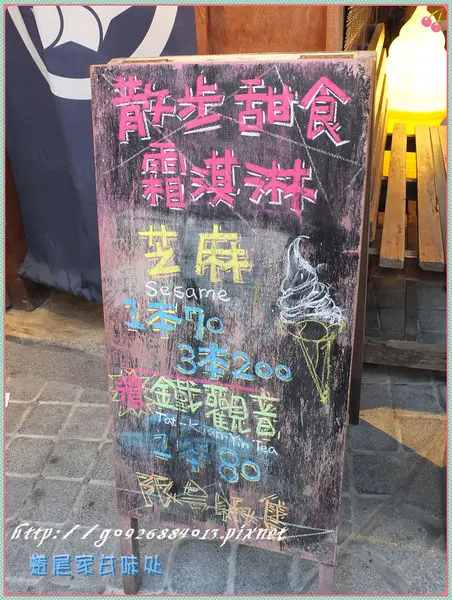 散步甜食
霜淇淋
芝麻
Sesame
1本70
3本200
鐵觀音
Tat-Kuan-Yin Tea
1本80
http://g0926884013.pixnet
蜷尾家甘味处